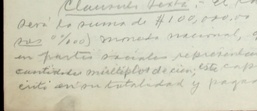 Clausula Sexta: El
será la suma de $100,000.00
sos 00/100) moneda nacional,
en partes sociales
cantidades múltiplos de cien; este
en su totalidad y